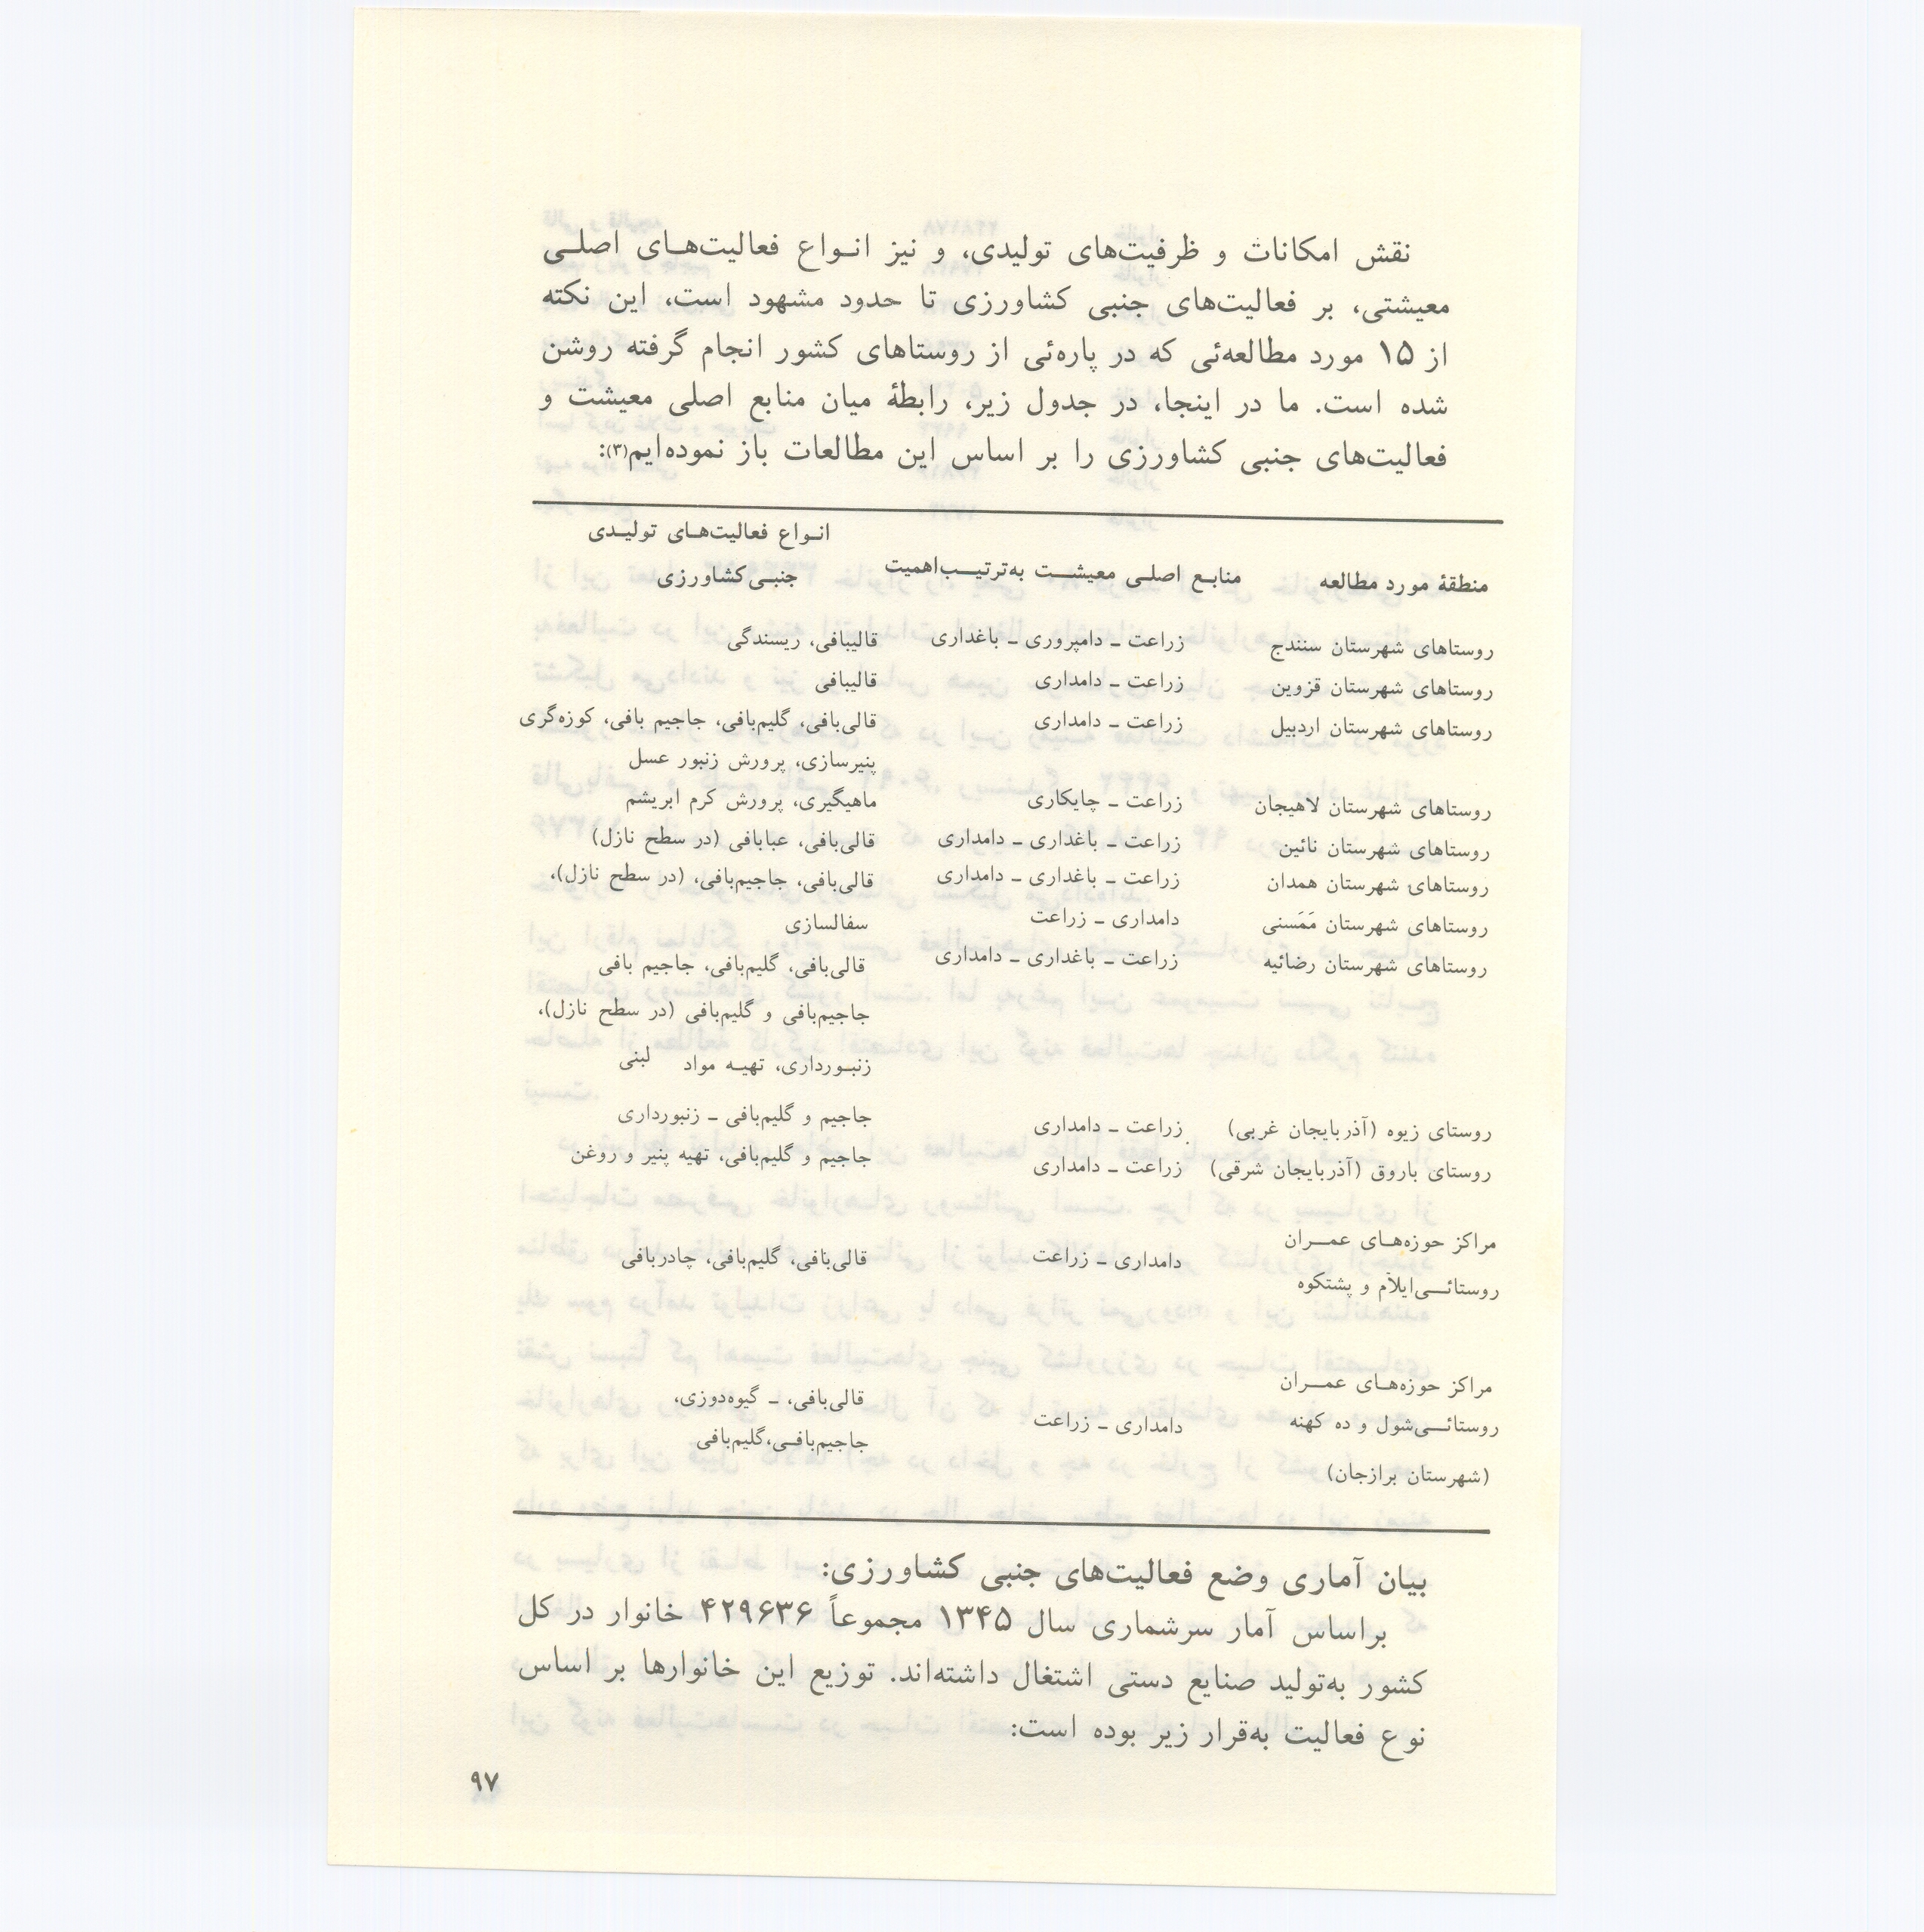 نقش امکانات و ظرفیت‌های تولیدی، و نیز انـواع فعالیت‌هـای اصلـی
معیشتی، بر فعالیت‌های جنبی کشاورزی تا حدود مشهود است، این نکته
از ۱۵ مورد مطالعه‌ئی که در پاره‌ئی از روستاهای کشور انجام گرفته روشن
شده است. ما در اینجا، در جدول زیر، رابطهٔ میان منابع اصلی معیشت و
فعالیت‌های جنبی کشاورزی را بر اساس این مطالعات باز نموده‌ایم(۳):
منطقهٔ مورد مطالعه منابـع اصلـی معیشــت به‌ترتیــب‌اهمیت انـواع فعالیت‌هـای تولیـدی
جنبـی‌کشاورزی
روستاهای شهرستان سنندج زراعت ـ دامپروری ـ باغداری قالیبافی، ریسندگی
روستاهای شهرستان قزوین زراعت ـ دامداری قالیبافی
روستاهای شهرستان اردبیل زراعت ـ دامداری قالی‌بافی، گلیم‌بافی، جاجیم بافی، کوزه‌گری
پنیرسازی، پرورش زنبور عسل
روستاهای شهرستان لاهیجان زراعت ـ چایکاری ماهیگیری، پرورش کرم ابریشم
روستاهای شهرستان نائین زراعت ـ باغداری ـ دامداری قالی‌بافی، عبابافی (در سطح نازل)
روستاهای شهرستان همدان زراعت ـ باغداری ـ دامداری قالی‌بافی، جاجیم‌بافی، (در سطح نازل)،
روستاهای شهرستان مَمَسنی دامداری ـ زراعت سفالسازی
روستاهای شهرستان رضائیه زراعت ـ باغداری ـ دامداری قالی‌بافی، گلیم‌بافی، جاجیم بافی
جاجیم‌بافی و گلیم‌بافی (در سطح نازل)،
زنبـورداری، تهیـه مواد لبنی
روستای زیوه (آذربایجان غربی) زراعت ـ دامداری جاجیم و گلیم‌بافی ـ زنبورداری
روستای باروق (آذربایجان شرقی) زراعت ـ دامداری جاجیم و گلیم‌بافی، تهیه پنیر و روغن
مراکز حوزه‌هـای عمــران
روستائــی‌ایلآم و پشتکوه دامداری ـ زراعت قالی‌بافی، گلیم‌بافی، چادربافی
مراکز حوزه‌هـای عمــران قالی‌بافی، ـ گیوه‌دوزی،
روستائــی‌شول و ده کهنه دامداری ـ زراعت جاجیم‌بافـی،گلیم‌بافی
(شهرستان برازجان)
بیان آماری وضع فعالیت‌های جنبی کشاورزی:
براساس آمار سرشماری سال ۱۳۴۵ مجموعاً ۴۲۹۶۳۶ خانوار در کل
کشور به‌تولید صنایع دستی اشتغال داشته‌اند. توزیع این خانوارها بر اساس
نوع فعالیت به‌قرار زیر بوده است:
۹۷